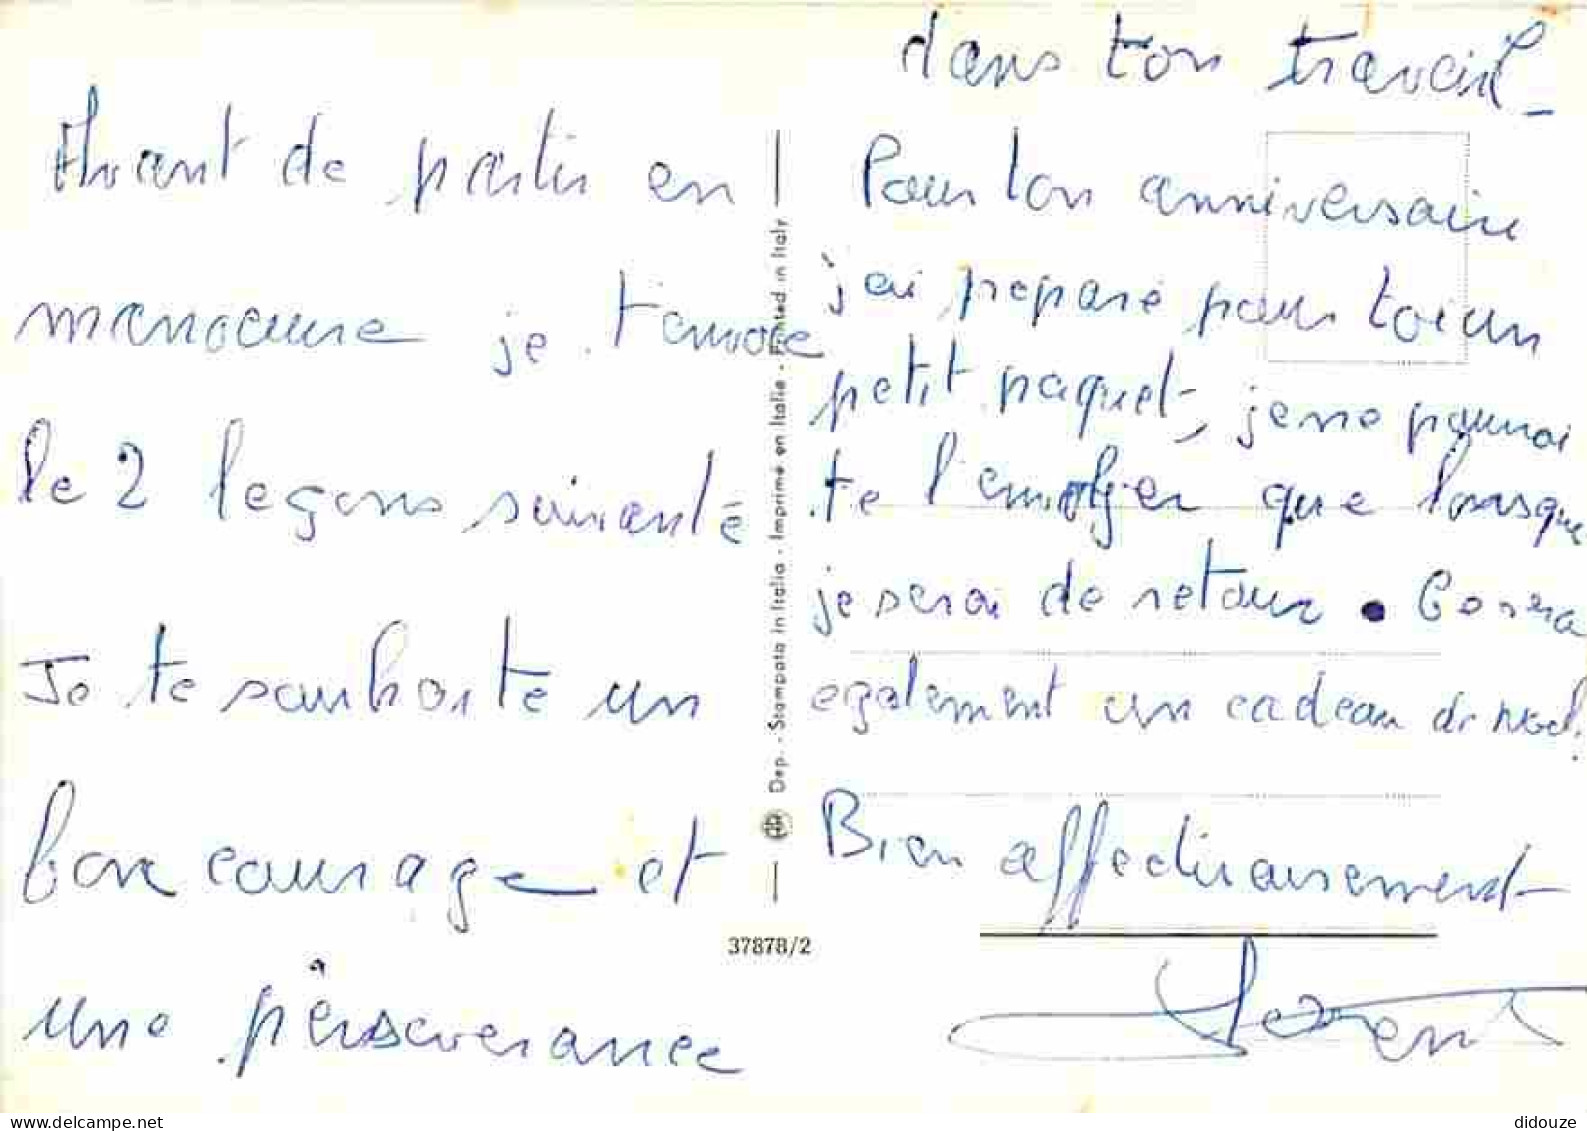 Avant de partir en
manoeuvre je t'envoie
le 2 leçons suivante
Je te souhaite un
bon courage et
une perseverance
dans ton travail -
Pour ton anniversaire
j'ai preparé pour toi un
petit paquet, je ne pourrai
te l'envoyer que lorsque
je serai de retour.
egalement un cadeau de noel.
Bien affectueusement
Dep. - Stampata in Italia - Imprimé en Italie - Printed in Italy
37878/2
didouze